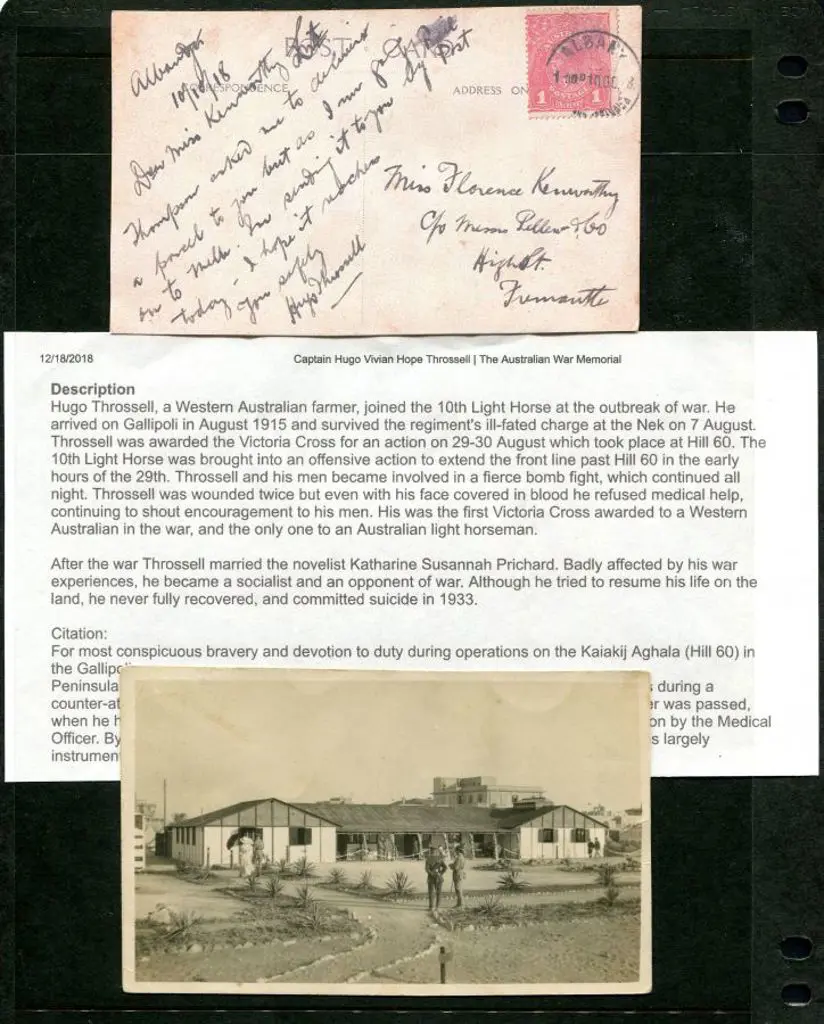 POST CARD
CORRESPONDENCE
ADDRESS ON
ALBANY
1
1
POSTAGE
Albany
10/10/18
Dear Miss Kenworthy
Thompson asked me to deliver
a parcel to you but as I am going
on to Melb. I'm sending it to you by Post
today - I hope it reaches
you safely
Hugo Throssell
Miss Florence Kenworthy
C/o Messrs Pellew & Co
High St.
Fremantle
12/18/2018
Captain Hugo Vivian Hope Throssell | The Australian War Memorial
Description
Hugo Throssell, a Western Australian farmer, joined the 10th Light Horse at the outbreak of war. He
arrived on Gallipoli in August 1915 and survived the regiment's ill-fated charge at the Nek on 7 August.
Throssell was awarded the Victoria Cross for an action on 29-30 August which took place at Hill 60. The
10th Light Horse was brought into an offensive action to extend the front line past Hill 60 in the early
hours of the 29th. Throssell and his men became involved in a fierce bomb fight, which continued all
night. Throssell was wounded twice but even with his face covered in blood he refused medical help,
continuing to shout encouragement to his men. His was the first Victoria Cross awarded to a Western
Australian in the war, and the only one to an Australian light horseman.
After the war Throssell married the novelist Katharine Susannah Prichard. Badly affected by his war
experiences, he became a socialist and an opponent of war. Although he tried to resume his life on the
land, he never fully recovered, and committed suicide in 1933.
Citation:
For most conspicuous bravery and devotion to duty during operations on the Kaiakij Aghala (Hill 60) in
the Gallipo
Peninsula s during a
counter-at er was passed,
when he h on by the Medical
Officer. By s largely
instrumen